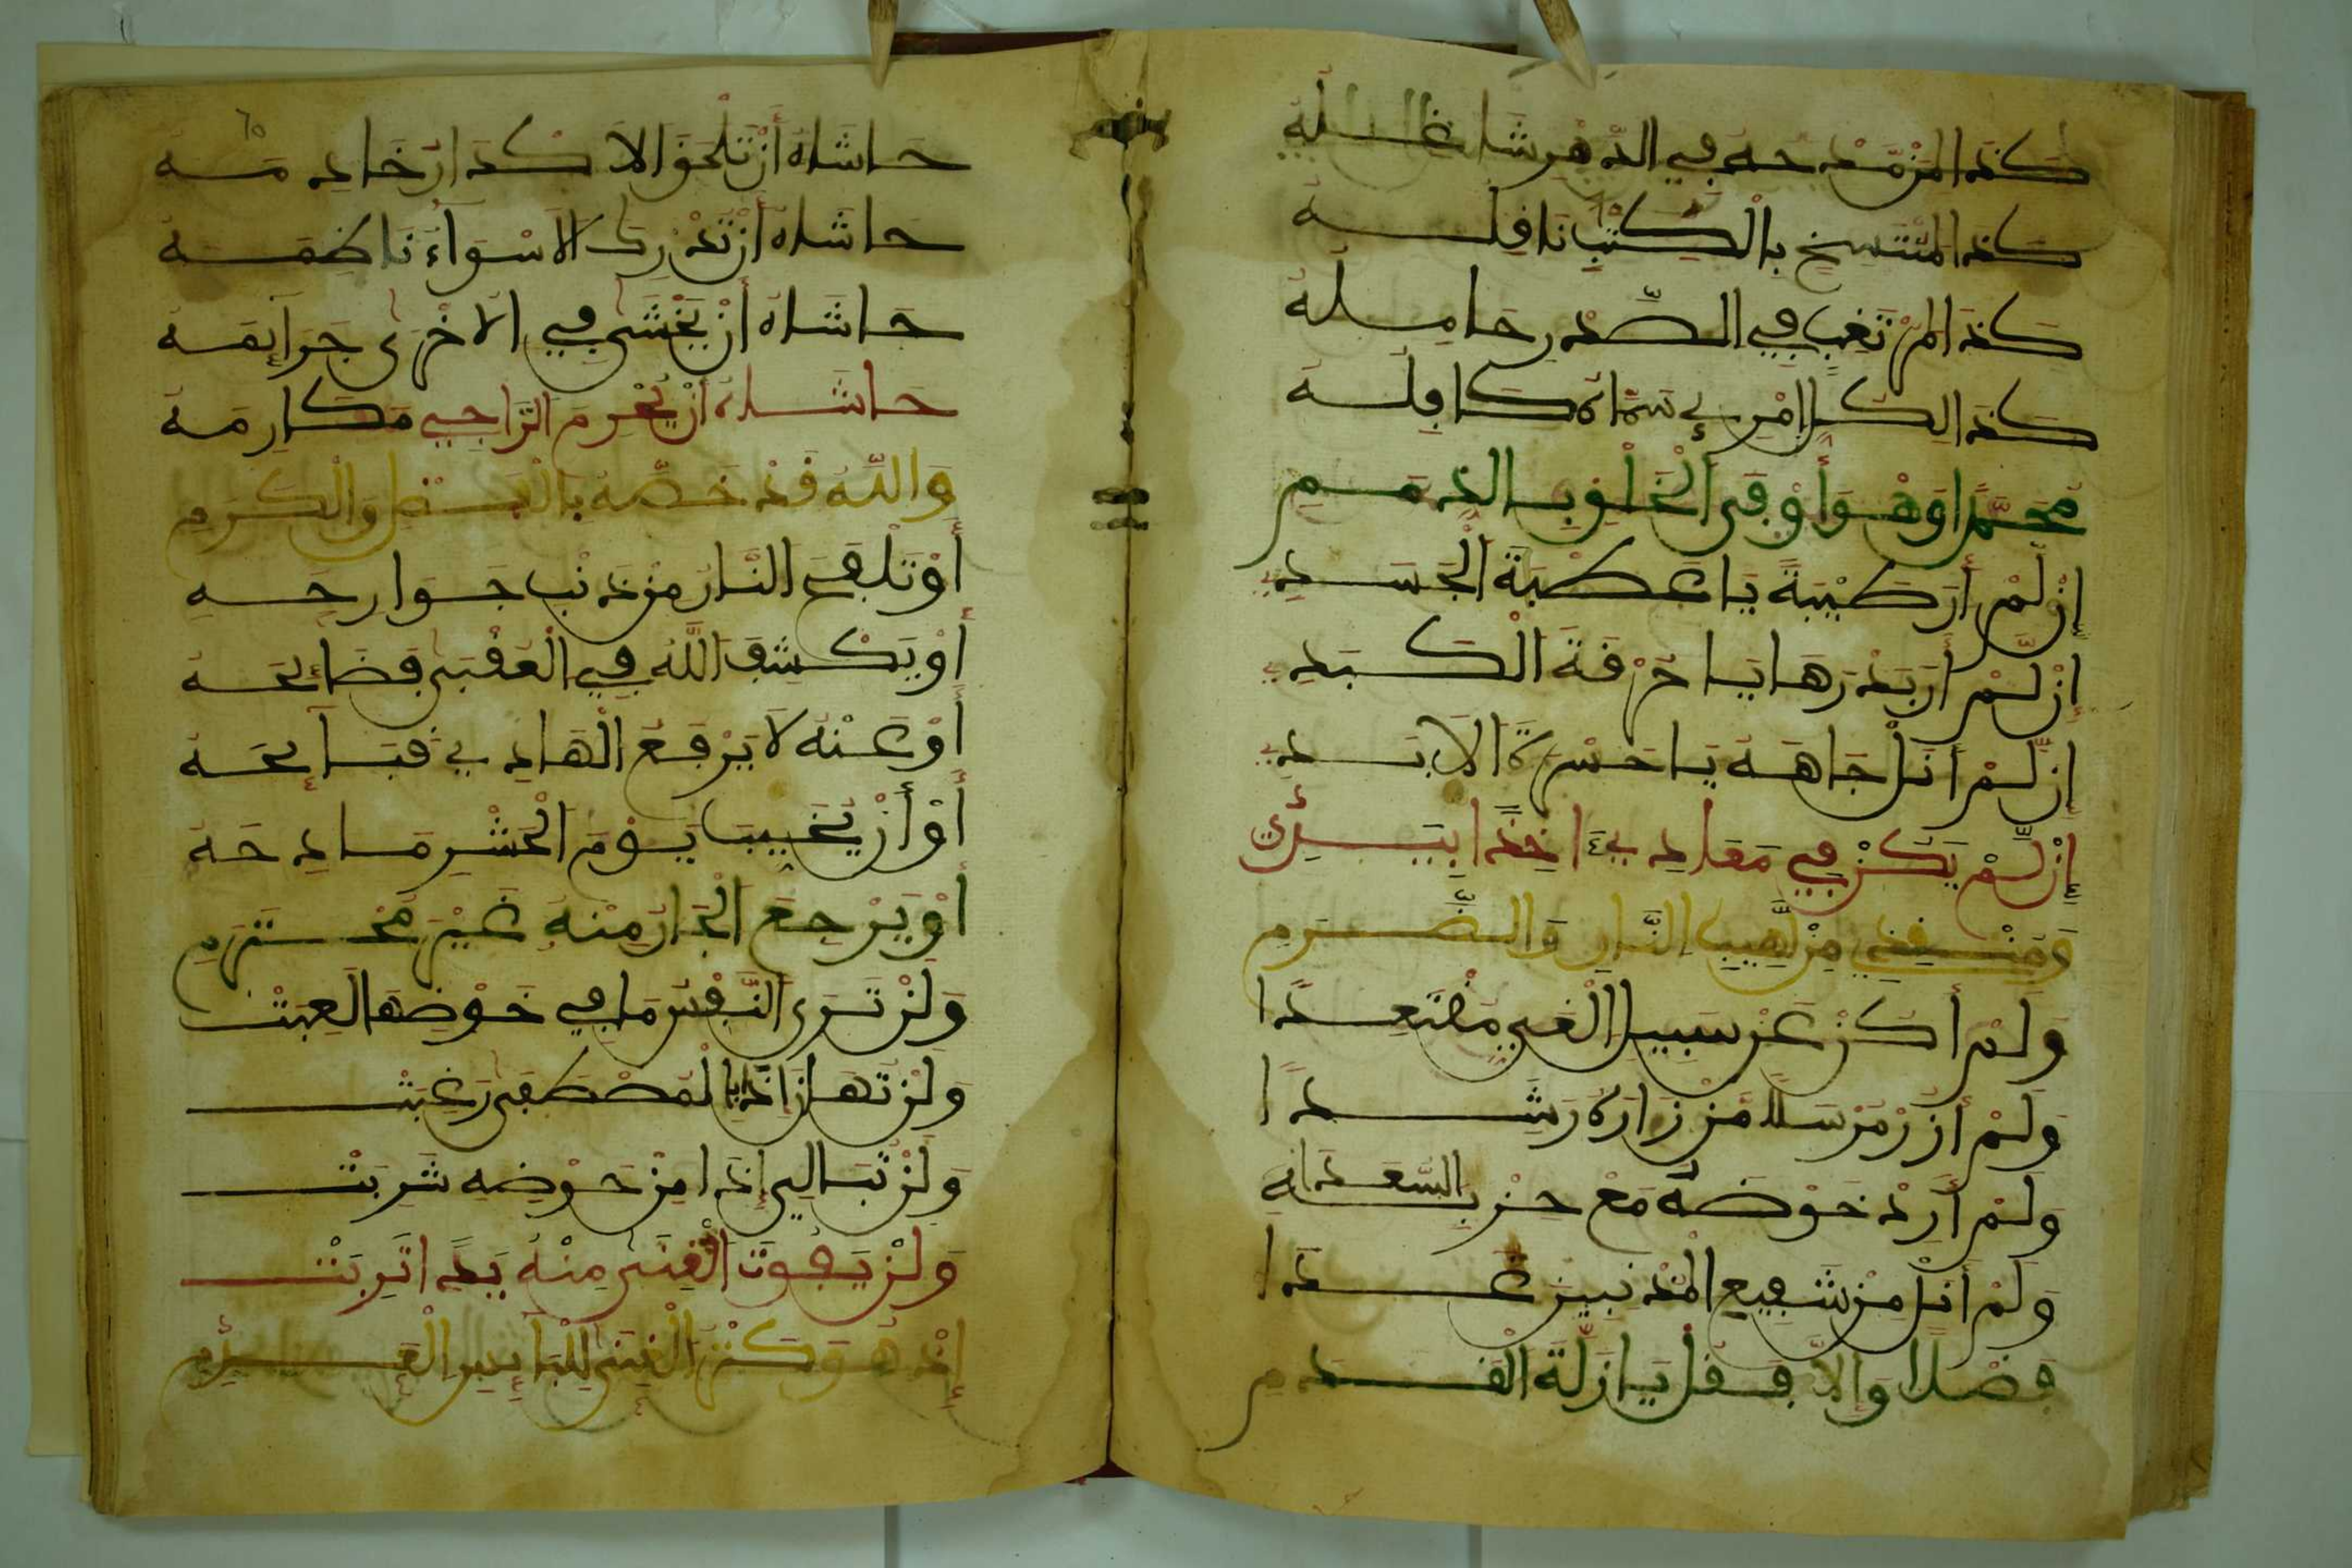 كَذَا لِمَنْ مَدْحُهُ فِي الدَّهْرِ شَاغِلُهُ
كَذَا لِمُنْتَسِخٍ بِالْكَتْبِ نَافِلَهْ
كَذَا لِمُرْتَغِبٍ فِي الصَّدْرِ حَامِلَهُ
كَذَا لِكُلِّ امْرِئٍ سَمَّاهُ كَافِلَهُ
مُحَمَّدًا وَهْوَ أَوْفَى الْخَلْقِ بِالذِّمَمِ
إِن لَّمْ أَرَ طَيْبَةً يَا عَطْبَةَ الْجَسَدِ
إِن لَّمْ أَرَ بَدْرَهَا يَا حُرْقَةَ الْكَبَدِ
إِن لَّمْ أَنَلْ جَاهَهُ يَا حَسْرَةَ الْأَبَدِ
إِن لَّمْ يَكُنْ فِي مَعَادِي ءَاخِذًا بِيَدِي
وَمُنْقِذِي مِن لَّهِيبِ النَّارِ وَالضَّرَمِ
وَلَمْ أَكُنْ عَنْ سَبِيلِ الْغَيِّ مُقْتَعِدًا
وَلَمْ أَزُرْ مُرْسَلًا مَنْ زَارَهُ رَشَدَا
وَلَمْ أَرِدْ حَوْضَهُ مَعْ حِزْبِ السُّعَدَا
وَلَمْ أَنَلْ مِنْ شَفِيعِ الْمُذْنِبِينَ غَدَا
فَضْلًا وَإِلَّا فَقُلْ يَا زَلَّةَ الْقَدَمِ
٦٥
حَاشَاهُ أَنْ تَلْحَقَ الْأَكْدَارُ خَادِمَهُ
حَاشَاهُ أَنْ تُدْرِكَ الْأَسْوَاءُ نَاظِمَهُ
حَاشَاهُ أَنْ يَخْشَى فِي الْأُخْرَى جَرَائِمَهُ
حَاشَاهُ أَنْ يُحْرَمَ الرَّاجِي مَكَارِمَهُ
وَاللَّهُ قَدْ خَصَّهُ بِالْفَضْلِ وَالْكَرَمِ
أَوْ تَلْفَحَ النَّارُ مِنْ ذَنْبٍ جَوَارِحَهُ
أَوْ يَكْشِفَ اللَّهُ فِي الْعُقْبَى فَضَائِحَهُ
أَوْ عَنْهُ لَا يَرْفَعُ الْهَادِي قَبَائِحَهُ
أَوْ أَنْ يُخَيِّبَ يَوْمَ الْحَشْرِ مَادِحَهُ
أَوْ يَرْجِعَ الْجَارُ مِنْهُ غَيْرَ مُحْتَرَمِ
وَلَنْ تَرَى النَّفْسُ مَا فِي خَوْضِهَا لَعِبَتْ
وَلَنْ تُهَانَ إِذَا بِالْمُصْطَفَى رَغِبَتْ
وَلَنْ تُبَالِي إِذَا مِنْ حَوْضِهِ شَرِبَتْ
وَلَنْ يَفُوتَ الْغِنَى مِنْهُ يَدًا تَرِبَتْ
إِذْ هُوَ كَنْزُ الْغِنَى لِلْبَائِسِ الْعَدِمِ